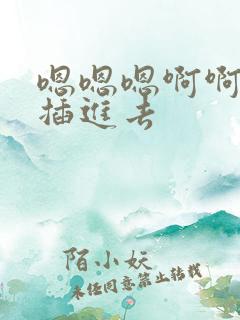 嗯嗯嗯啊啊
插进去
陌小妖
未经同意禁止转载